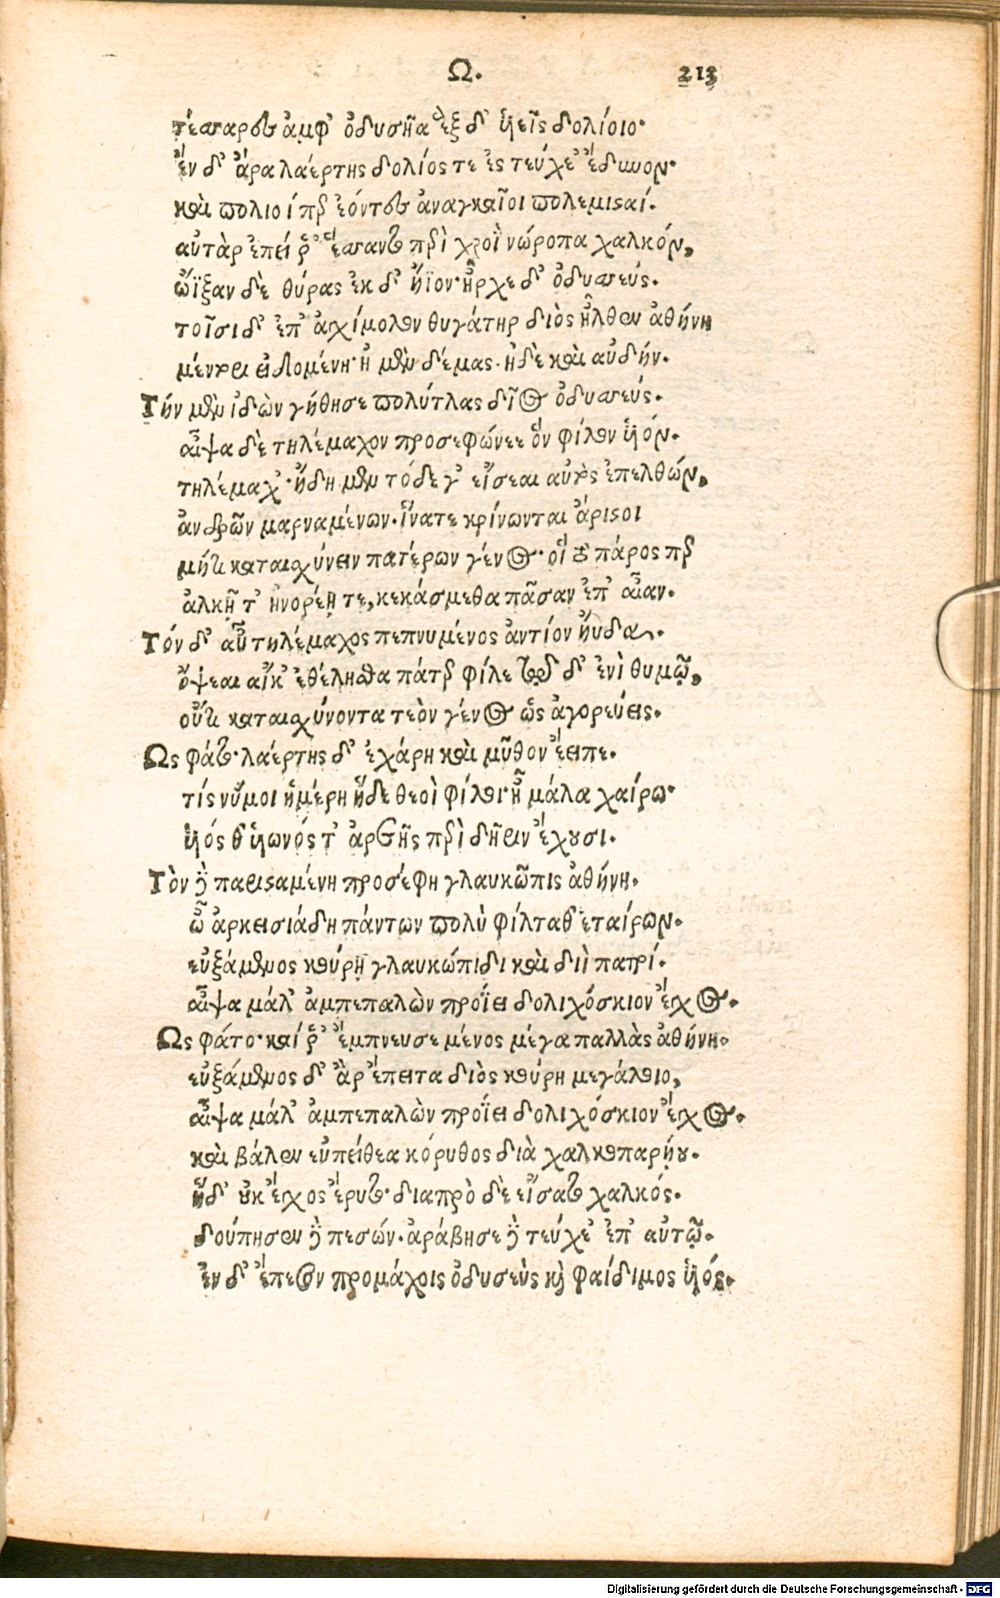 Ω. 213
τέσσαρες ἀμφ' ὀδυσῆα ἓξ δ' ὑιεῖς δολίοιο·
ἐν δ' ἄρα λαέρτης δολίος τε ἐς τεύχε' ἔδυνον·
καὶ πολιοί περ ἐόντες ἀναγκαῖοι πολεμισταί.
αὐτὰρ ἐπεί ῥ' ἕσσαντο περὶ χροῒ νώροπα χαλκόν,
ὤϊξαν δὲ θύρας ἐκ δ' ἤϊον· ἦρχε δ' ὀδυσσεύς.
τοῖσι δ' ἐπ' ἀγχίμολον θυγάτηρ διὸς ἦλθεν ἀθήνη
μέντορι εἰδομένη· ἠ μὲν δέμας· ἠδὲ καὶ αὐδήν.
Τὴν μὲν ἰδὼν γήθησε πολύτλας δῖος ὀδυσσεύς.
αἶψα δὲ τηλέμαχον προσεφώνεε ὃν φίλον ὑιόν.
τηλέμαχ'· ἤδη μὲν τόδε γ' εἴσεαι αὐτὸς ἐπελθών,
ἀνδρῶν μαρναμένων· ἵνα τε κρίνωνται ἄριστοι
μήτι καταισχύνειν πατέρων γένος· οἳ τὸ πάρος περ
ἀλκῇ τ' ἠνορέῃ τε, κεκάσμεθα πᾶσαν ἐπ' αἶαν.
Τὸν δ' αὖ τηλέμαχος πεπνυμένος ἀντίον ηὔδα.
ὄψεαι αἴκ' ἐθέλησθα πάτερ φίλε τῷδ' ἐνὶ θυμῷ,
οὔτι καταισχύνοντα τεὸν γένος ὡς ἀγορεύεις.
Ως φάτο· λαέρτης δ' ἐχάρη καὶ μῦθον ἔειπε.
τίς νύ μοι ἡμέρη ἥδε θεοὶ φίλοι· ἦ μάλα χαίρω·
ὑιός θ' ὑιωνός τ' ἀρετῆς περὶ δῆριν ἔχουσι.
Τὸν δὲ παρισταμένη προσέφη γλαυκῶπις ἀθήνη.
ὦ ἀρκεισιάδη πάντων πολὺ φίλταθ' ἑταίρων.
εὐξάμενος κούρῃ γλαυκώπιδι καὶ διῒ πατρί.
αἶψα μάλ' ἀμπεπαλὼν προΐει δολιχόσκιον ἔγχος.
Ως φάτο· καί ῥ' ἔμπνευσε μένος μέγα παλλὰς ἀθήνη.
εὐξάμενος δ' ἂρ ἔπειτα διὸς κούρη μεγάλοιο,
αἶψα μάλ' ἀμπεπαλὼν προΐει δολιχόσκιον ἔγχος.
καὶ βάλεν εὐπείθεα κόρυθος διὰ χαλκοπαρήου.
ἥδ' οὐκ ἔγχος ἔρυτο· διαπρὸ δὲ εἴσατο χαλκός.
δούπησεν δὲ πεσών· ἀράβησε δὲ τεύχε' ἐπ' αὐτῷ.
ἐν δ' ἔπεσον προμάχοις ὀδυσεὺς καὶ φαίδιμος ὑιός.
Digitalisierung gefördert durch die Deutsche Forschungsgemeinschaft - DFG